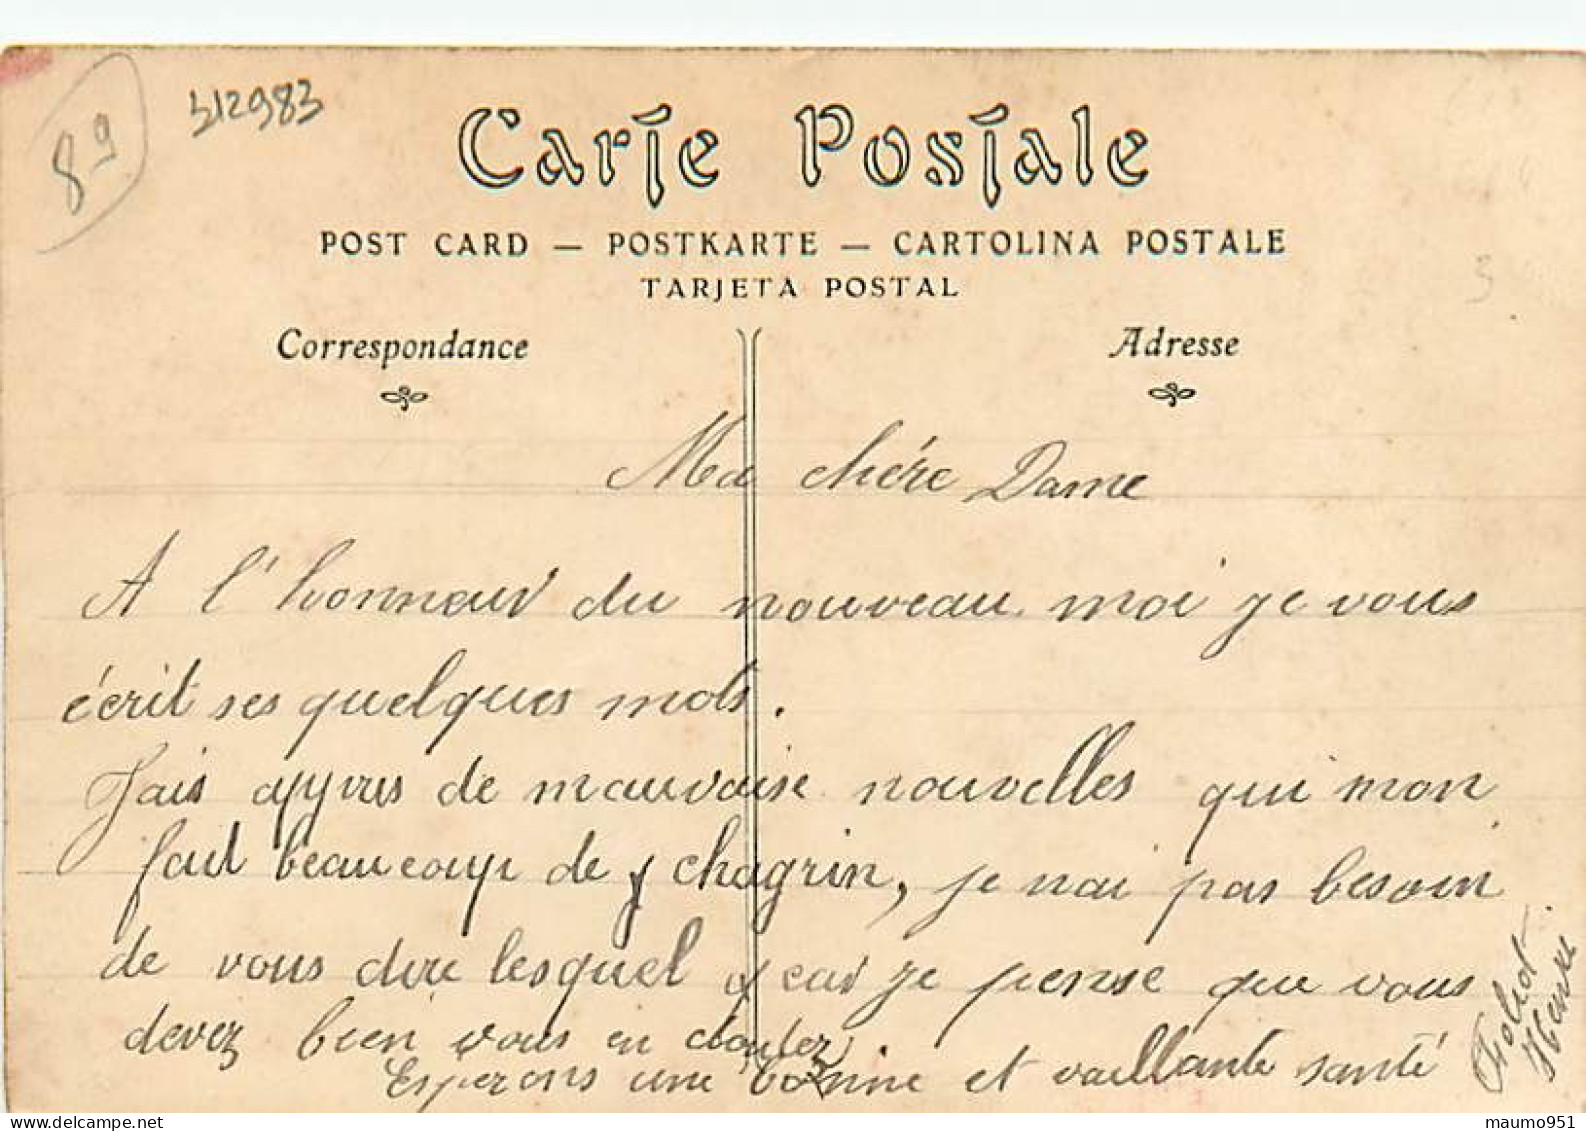 89
312983
Carte Postale
POST CARD — POSTKARTE — CARTOLINA POSTALE
TARJETA POSTAL
Correspondance
Adresse
3
Ma chére Dame
A l'honneur du nouveau moi je vous
écrit ses quelques mots.
Jais appris de mauvaise nouvelles qui mon
fait beaucoup de chagrin, je nai pas besoin
de vous dire lesquel car je pense que vous
devez bien vous en douter.
Esperons une bonne et vaillante santé
Henri
maumo951